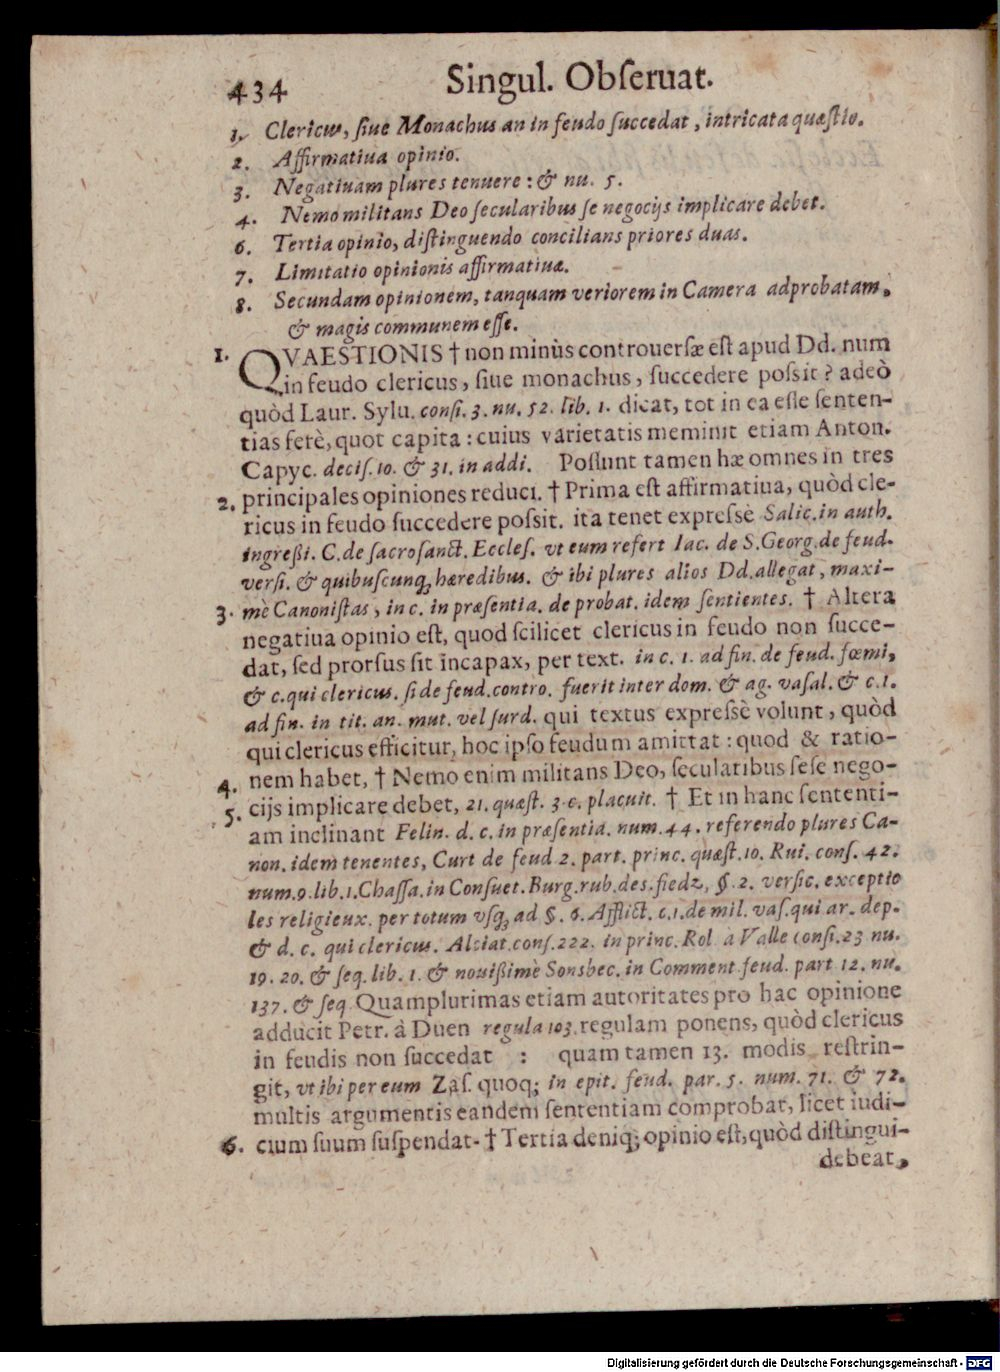 434 Singul. Obſeruat.
1. Clericus, ſiue Monachus an in feudo ſuccedat, intricata quæſtio.
2. Affirmatiua opinio.
3. Negatiuam plures tenuere: & nu. 5.
4. Nemo militans Deo ſecularibus ſe negocijs implicare debet.
6. Tertia opinio, diſtinguendo concilians priores duas.
7. Limitatio opinionis affirmatiuæ.
8. Secundam opinionem, tanquam veriorem in Camera adprobatam,
& magis communem eſſe.
1. QVAESTIONIS † non minùs controuerſæ eſt apud Dd. num
in feudo clericus, ſiue monachus, ſuccedere poſsit? adeò
quòd Laur. Sylu. conſi. 3. nu. 52. lib. 1. dicat, tot in ea eſſe ſenten-
tias ferè, quot capita: cuius varietatis meminit etiam Anton.
Capyc. deciſ. 10. & 31. in addi. Poſſunt tamen hæ omnes in tres
2. principales opiniones reduci. † Prima eſt affirmatiua, quòd cle-
ricus in feudo ſuccedere poſsit. ita tenet expreſsè Salic. in auth.
ingreßi. C. de ſacroſanct. Eccleſ. vt eum refert Iac. de S. Georg. de feud.
verſi. & quibuſcunq; hæredibus. & ibi plures alios Dd. allegat, maxi-
3. mè Canoniſtas, in c. in præſentia. de probat. idem ſentientes. † Altera
negatiua opinio eſt, quod ſcilicet clericus in feudo non ſucce-
dat, ſed prorſus ſit incapax, per text. in c. 1. ad fin. de feud. fœmi,
& c. qui clericus. ſi de feud. contro. fuerit inter dom. & ag. vaſal. & c. 1.
ad fin. in tit. an. mut. vel ſurd. qui textus expreſsè volunt, quòd
qui clericus efficitur, hoc ipſo feudum amittat: quod & ratio-
4. nem habet, † Nemo enim militans Deo, ſecularibus ſeſe nego-
5. cijs implicare debet, 21. quæſt. 3. c. placuit. † Et in hanc ſententi-
am inclinant Felin. d. c. in præſentia. num. 44. referendo plures Ca-
non. idem tenentes, Curt de feud 2. part. princ. quæſt. 10. Rui. conſ. 42.
num. 9. lib. 1. Chaſſa. in Conſuet. Burg. rub. des. fiedz, §. 2. verſic. exceptio
les religieux. per totum vſq; ad §. 6. Afflict. c. 1. de mil. vaſ. qui ar. dep.
& d. c. qui clericus. Alciat. conſ. 222. in princ. Rol à Valle conſi. 23 nu.
19. 20. & ſeq. lib. 1. & nouißimè Sonsbec. in Comment. feud. part 12. nu.
137. & ſeq Quamplurimas etiam autoritates pro hac opinione
adducit Petr. à Duen regula 103. regulam ponens, quòd clericus
in feudis non ſuccedat : quam tamen 13. modis reſtrin-
git, vt ibi per eum Zaſ. quoq; in epit. feud. par. 5. num. 71. & 72.
multis argumentis eandem ſententiam comprobat, licet iudi-
6. cium ſuum ſuſpendat. † Tertia deniq; opinio eſt, quòd diſtingui-
debeat,
Digitalisierung gefördert durch die Deutsche Forschungsgemeinschaft - DFG